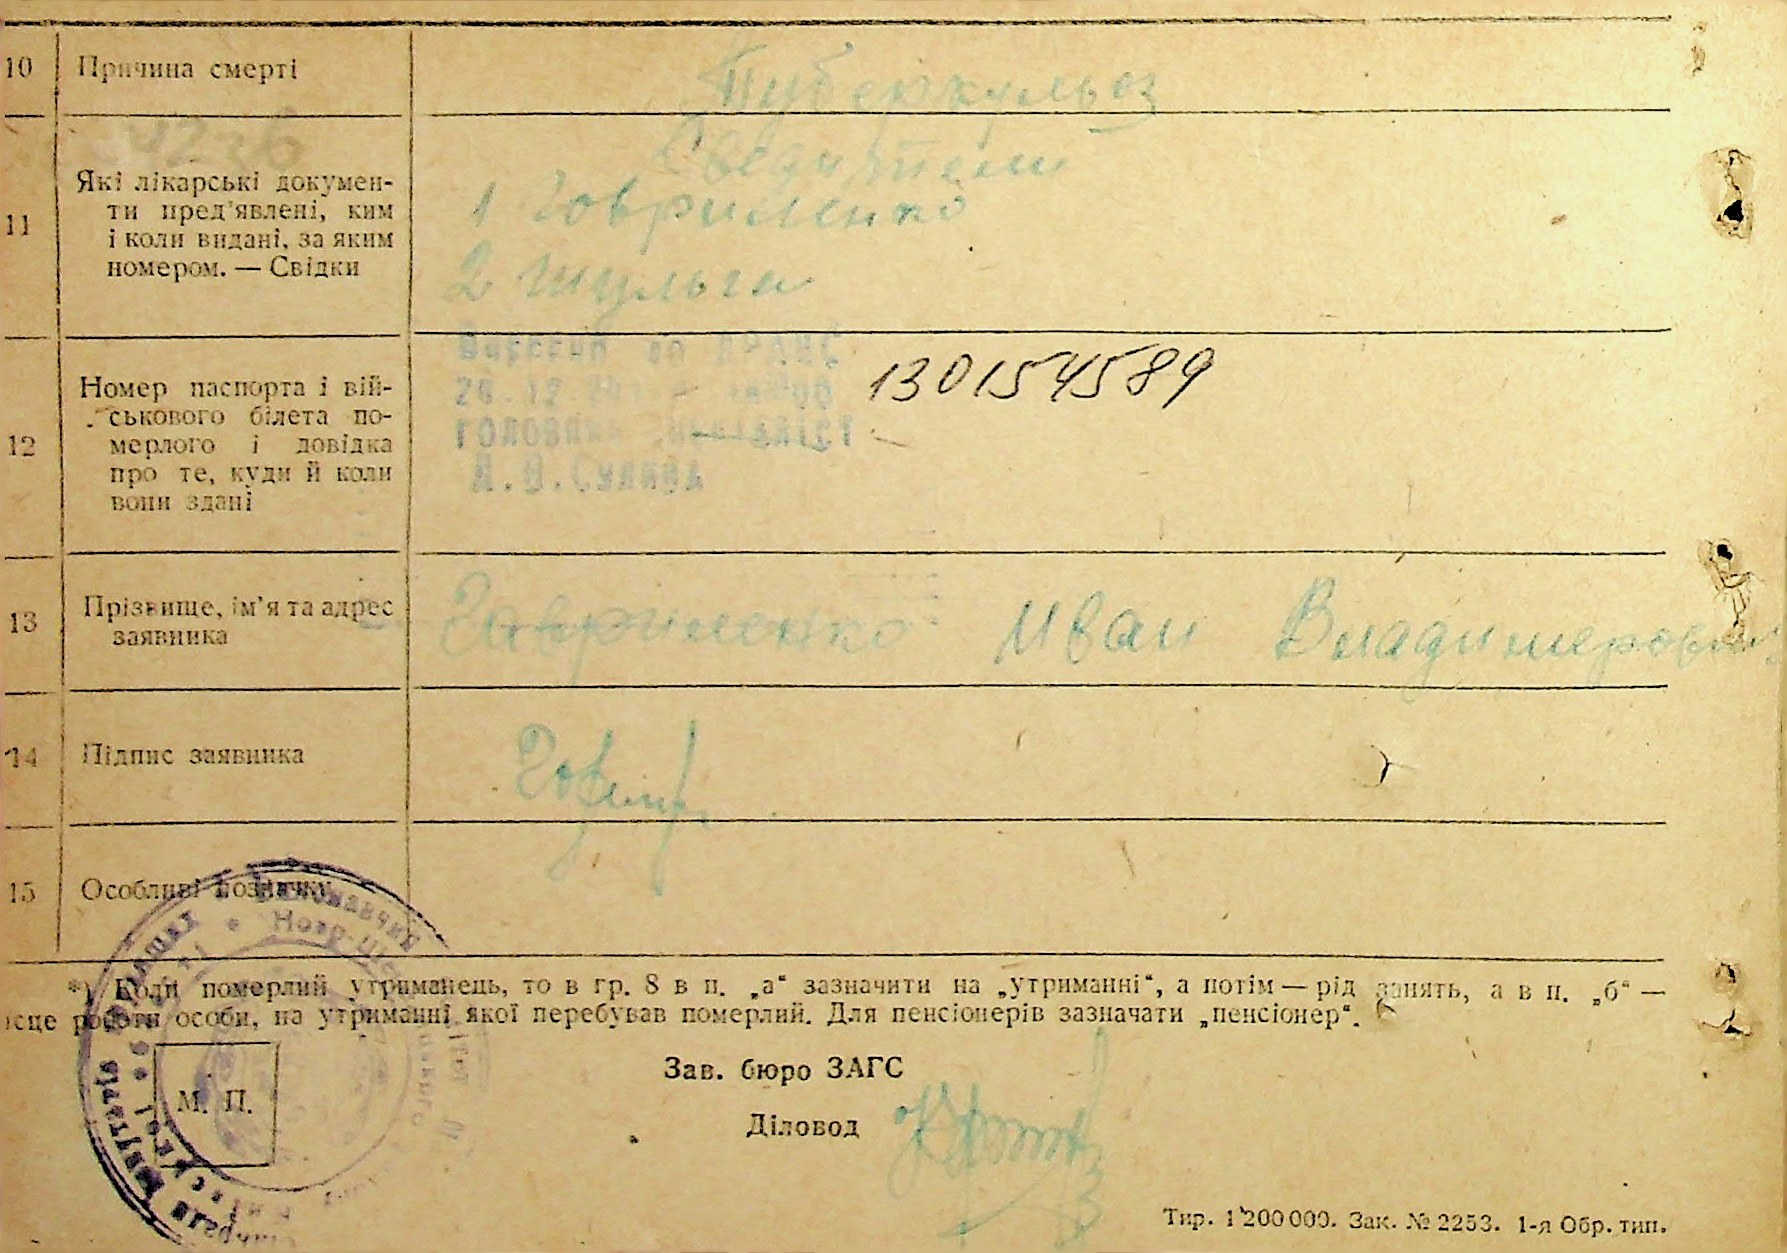 10 Причина смерті
Туберкульоз
Сведители
11 Які лікарські докумен-
ти пред'явлені, ким
і коли видані, за яким
номером. — Свідки
1 Говриленко
2 Шульга
12 Номер паспорта і вій-
ськового білета по-
мерлого і довідка
про те, куди й коли
вони здані
130154589
13 Прізвище, ім'я та адрес
заявника
Гавриленко Иван
14 Підпис заявника
15 Особливі познаки
*) Коли померлий утриманець, то в гр. 8 в п. „а“ зазначити на „утриманні“, а потім — рід занять, а в п. „б“ —
ісце роботи особи, на утриманні якої перебував померлий. Для пенсіонерів зазначати „пенсіонер“.
М. П.
Зав. бюро ЗАГС
Діловод
Тир. 1200000. Зак. № 2253. 1-я Обр. тип.